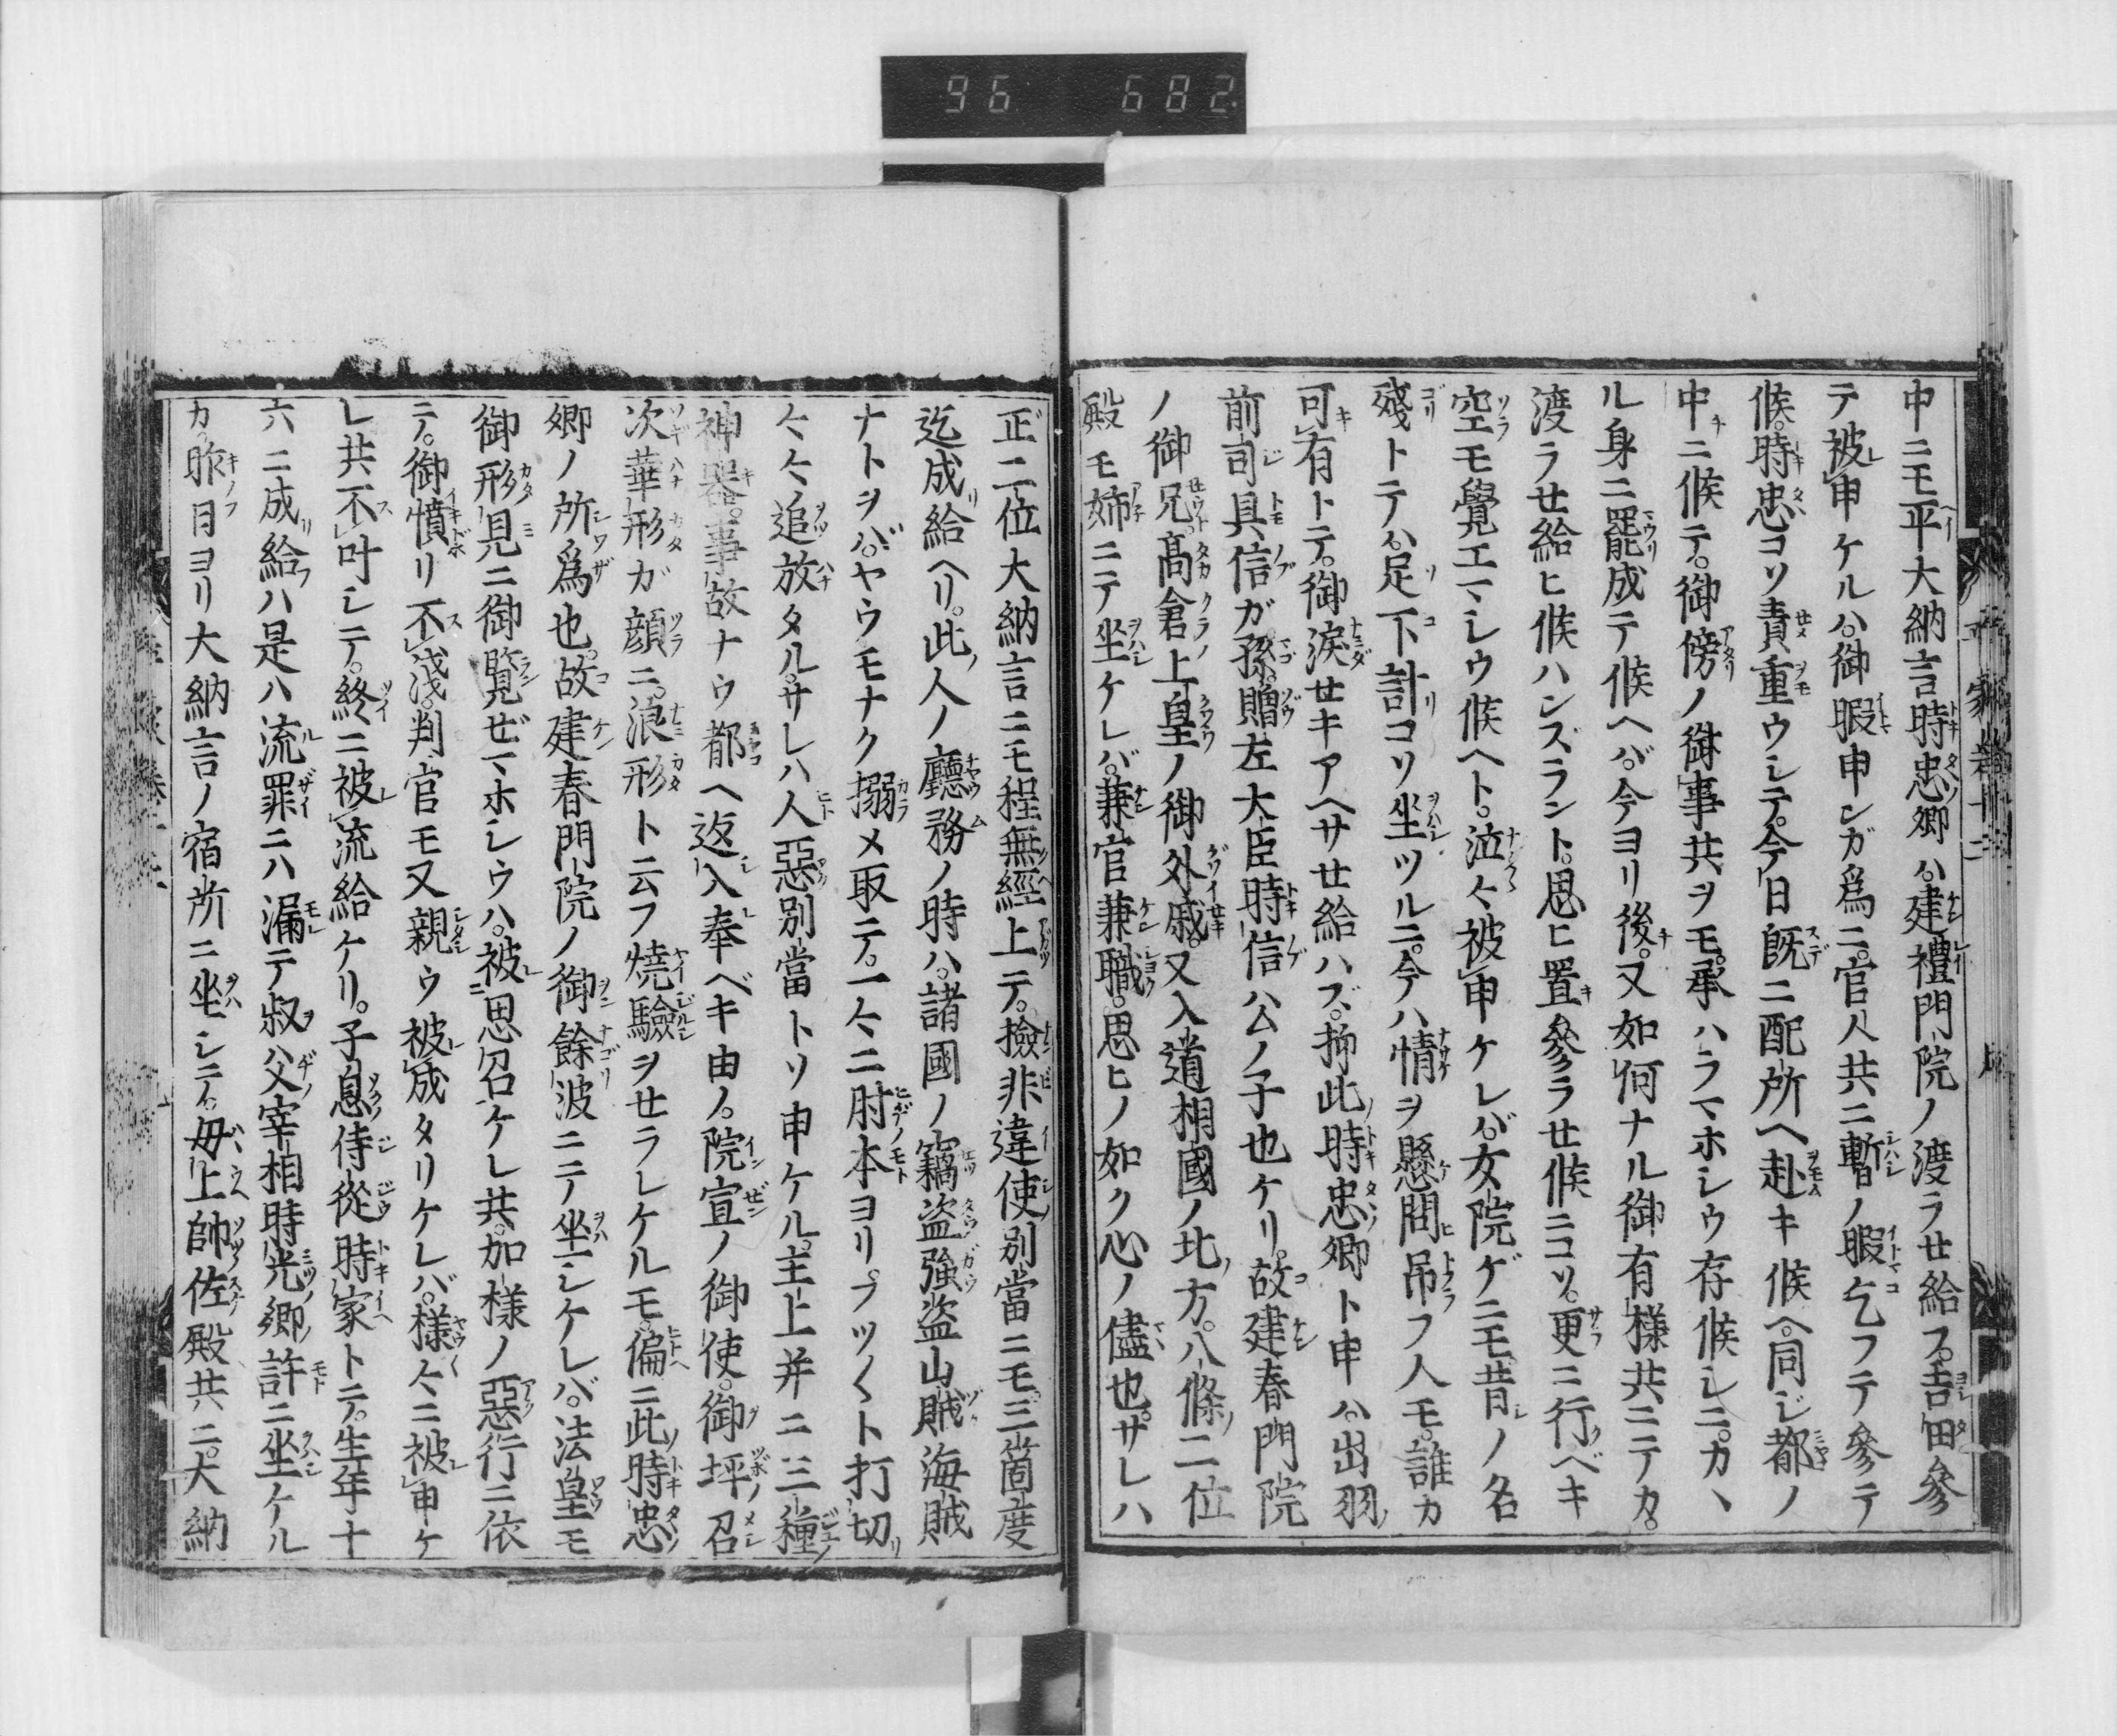 96 682
中ニモ平大納言時忠卿ハ。建禮門院ノ渡ラせ給フ。吉田參
テ被申ケルハ。御暇申ンガ爲ニ。官人共ニ暫ノ暇乞フテ參テ
候。時忠コソ責重ウシテ。今日既ニ配所ヘ赴キ候ヘ。同ジ都ノ
中ニ候テ。御傍ノ御事共ヲモ。承ハラマホシウ存候シニ。カヽ
ル身ニ罷成テ候ヘバ。今ヨリ後。又如何ナル御有樣共ニテカ。
渡ラせ給ヒ候ハンズラント。思ヒ置參ラせ候ニコソ。更ニ行ベキ
空モ覺エマシウ候ヘト。泣々被申ケレバ。女院ゲニモ。昔ノ名
殘トテハ。足下計コソ坐ツルニ。今ハ情ヲ懸問吊フ人モ。誰カ
可有トテ。御淚せキアヘサせ給ハズ。抑此時忠卿ト申ハ。出羽
前司具信ガ孫。贈左大臣時信公ノ子也ケリ。故建春門院
ノ御兄。髙倉上皇ノ御外戚。又入道相國ノ北方。八條二位
殿モ姉ニテ坐ケレバ。兼官兼職。思ヒノ如ク心ノ儘也。サレハ
正二位大納言ニモ程無經上テ。撿非違使別當ニモ。三箇度
迄成給ヘリ。此人ノ廳務ノ時ハ。諸國ノ竊盜強盜山賊海賊
ナトヲバ。ヤウモナク搦メ取テ。一々ニ肘本ヨリ。フツ〱ト打切
々々追放タル。サレハ人惡別當トソ申ケル。主上并ニ三種
神器。事故ナウ都ヘ返入奉ベキ由ノ。院宣ノ御使。御坪召
次華形ガ顔ニ。浪形ト云フ燒驗ヲせラレケルモ。偏ニ此時忠
卿ノ所爲也。故建春門院ノ御餘波ニテ坐シケレバ。法皇モ
御形見ニ御覽ぜマホシウハ。被思召ケレ共。加樣ノ惡行ニ依
テ。御憤リ不淺。判官モ又親ウ被成タリケレバ。樣々ニ被申ケ
レ共。不叶シテ。終ニ被流給ケリ。子息侍從時家トテ。生年十
六ニ成給フハ是ハ流罪ニハ漏テ叔父宰相時光卿ノ許ニ坐ケル
カ。昨日ヨリ大納言ノ宿所ニ坐シテ。母上帥佐殿共ニ。大納